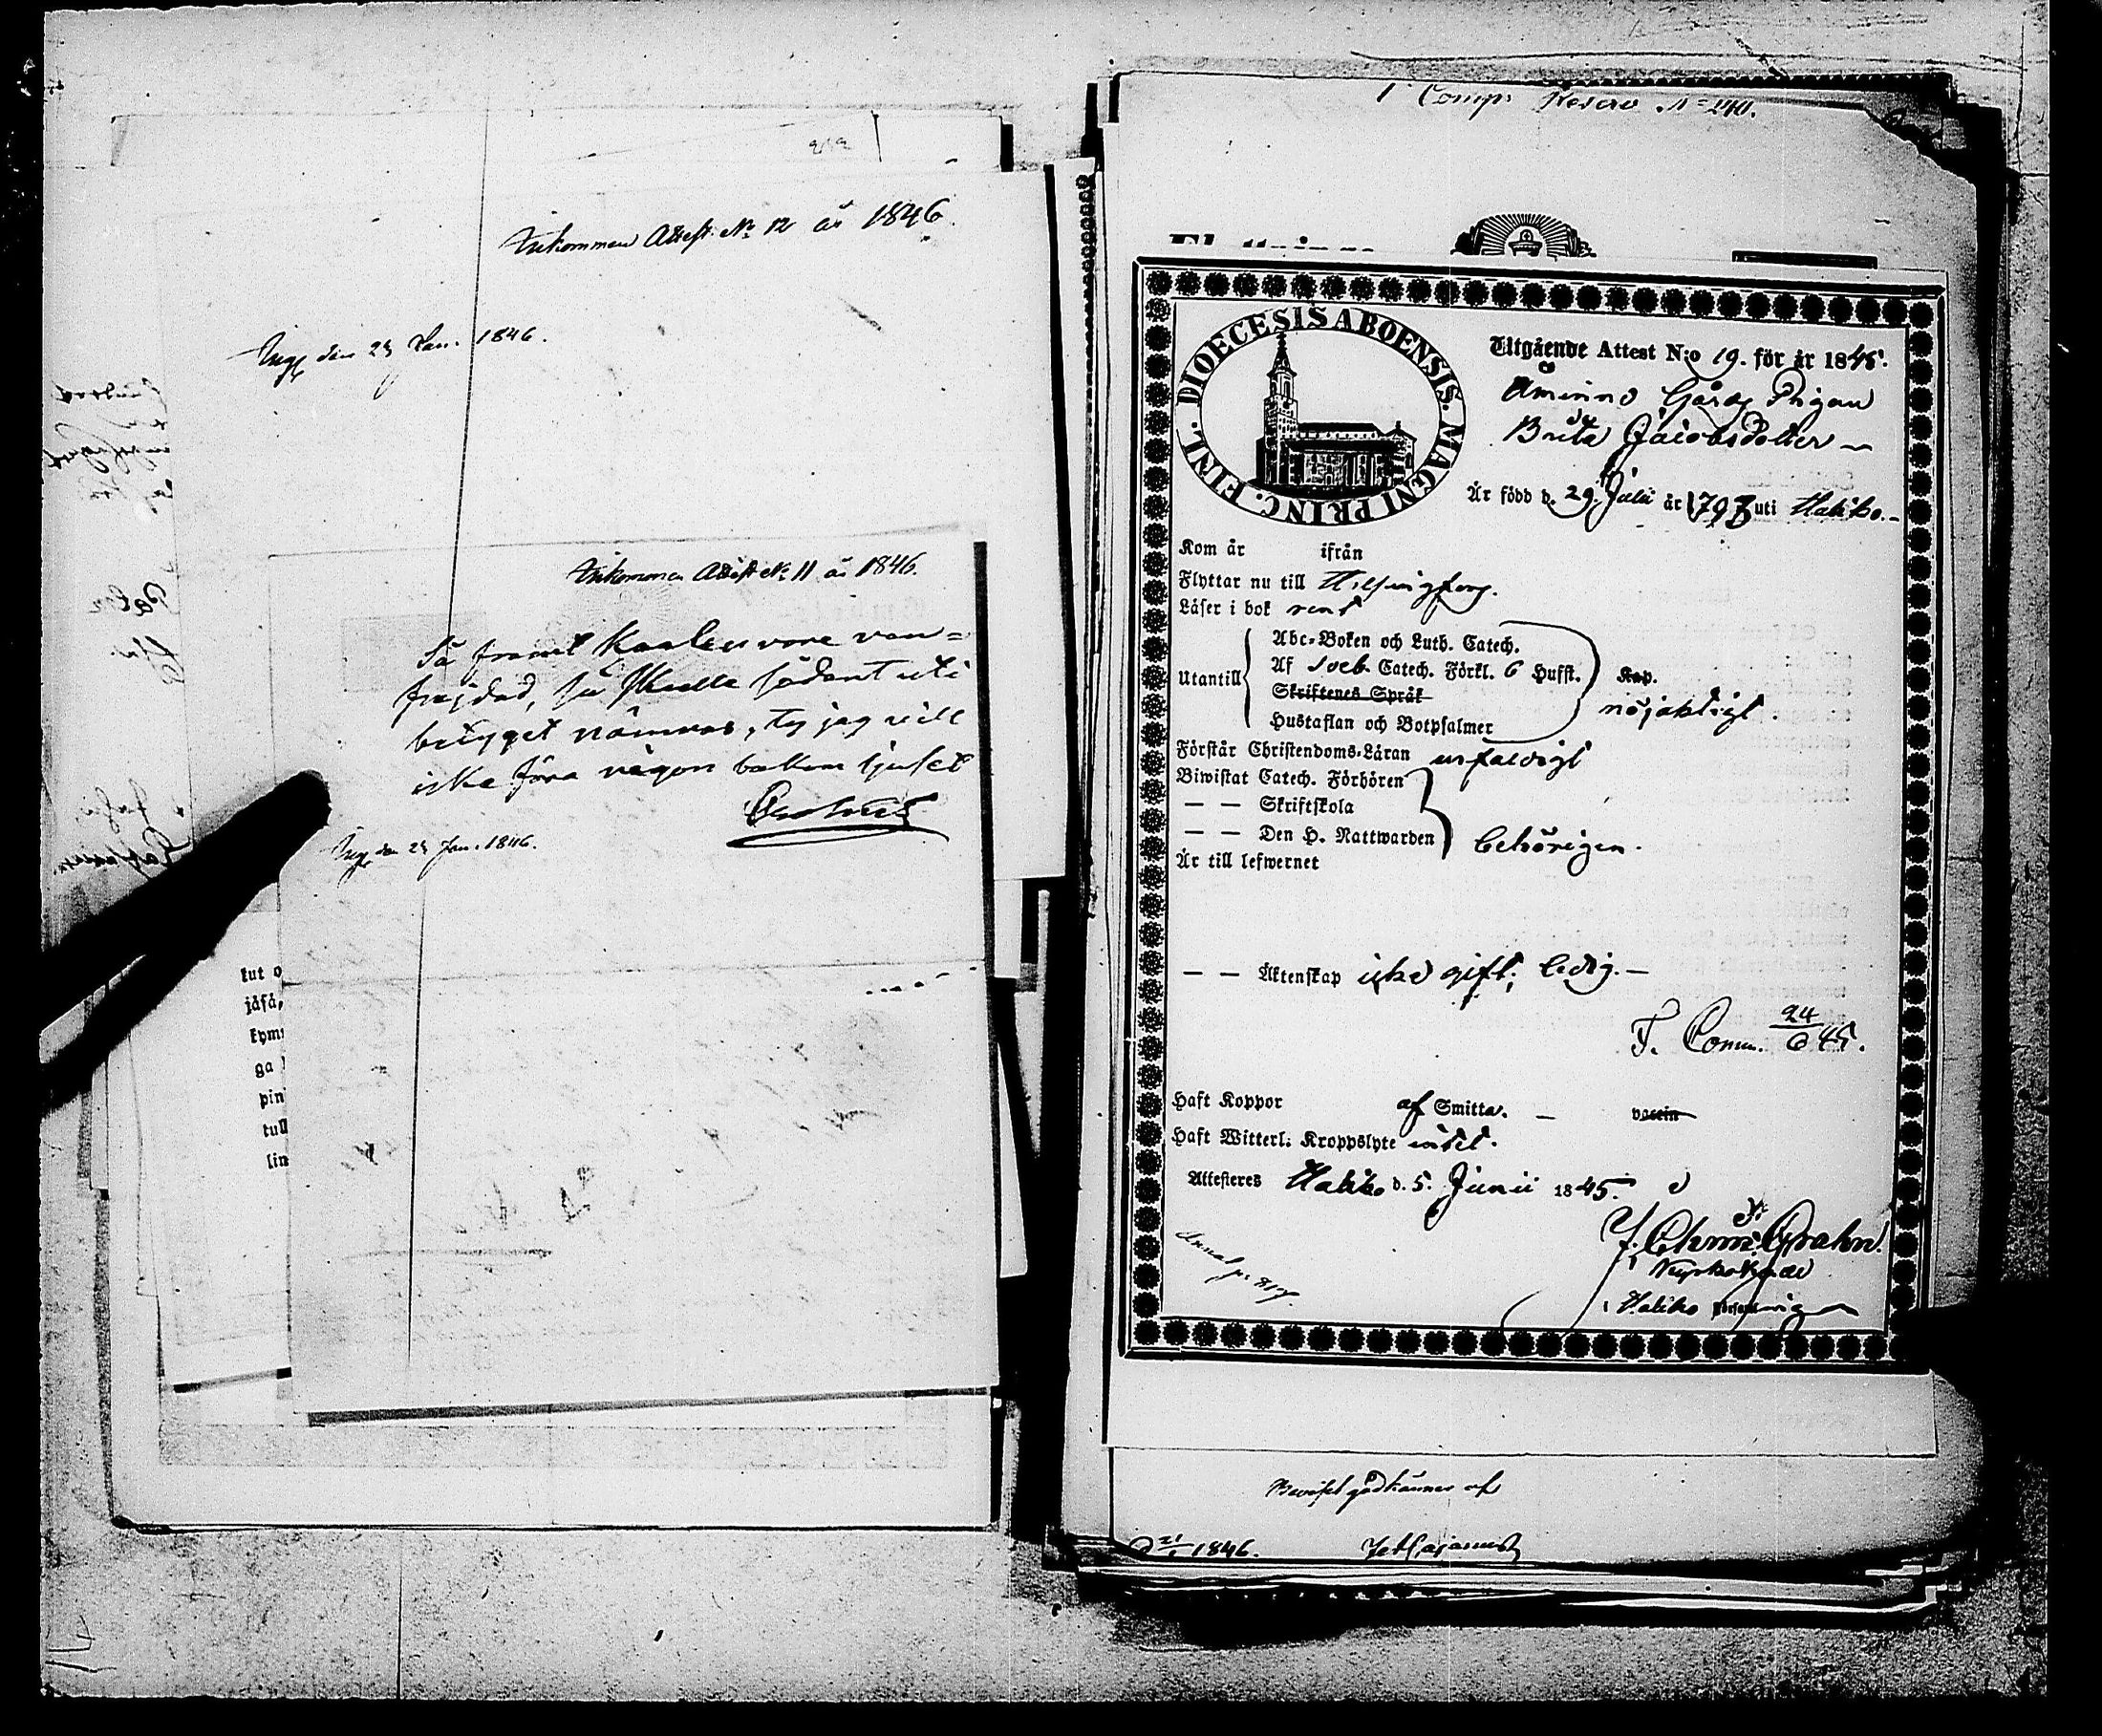 Inkommen Attest No 12 år 1846.
Ing. den 23 Jan. 1846.
Inkommen Attest No 11 år 1846.
Så framt Karlen vore van=
frejdad, så skulle sådant uti
betyget nämnas, ty jag vill
icke föra någon bakom ljuset
Ing. den 23 Jan. 1846.
kut o
jåså,
kym
ga
pin
tull
lin
1 Comp. Reserv No 240.
DIOECESIS ABOENSIS. MAGNI PRINC. FINL.
Utgående Attest N:o 19. för år 1845.
Åminne Gårds Pigan
Brita Jacobsdotter
Är född d. 29. Julii år 1797 uti Haliko.
Kom år ifrån
Flyttar nu till Helsingfors.
Läser i bok rent
Utantill
Abc-Boken och Luth. Catech.
Af Sveb. Catech. Förkl. 6 Hufst. Kap.
Skriftenes Språk
nöjaktigt.
Hustaflan och Botpsalmer
Förstår Christendoms-Läran enfaldigt
Biwistat Catech. Förhören
— — Skriftskola
— — Den H. Nattwarden behörigen.
Är till lefwernet
— — Äktenskap icke gift; ledig.
F. Comm. 24/6 45.
Haft Koppor af Smitta. — vaccin
Haft Witterl. Kroppslyte intet.
Attesteres Haliko d. 5. Junii 1845.
Grahn.
Kyrkoherde
i Haliko
Beviset godkännes af
1846.